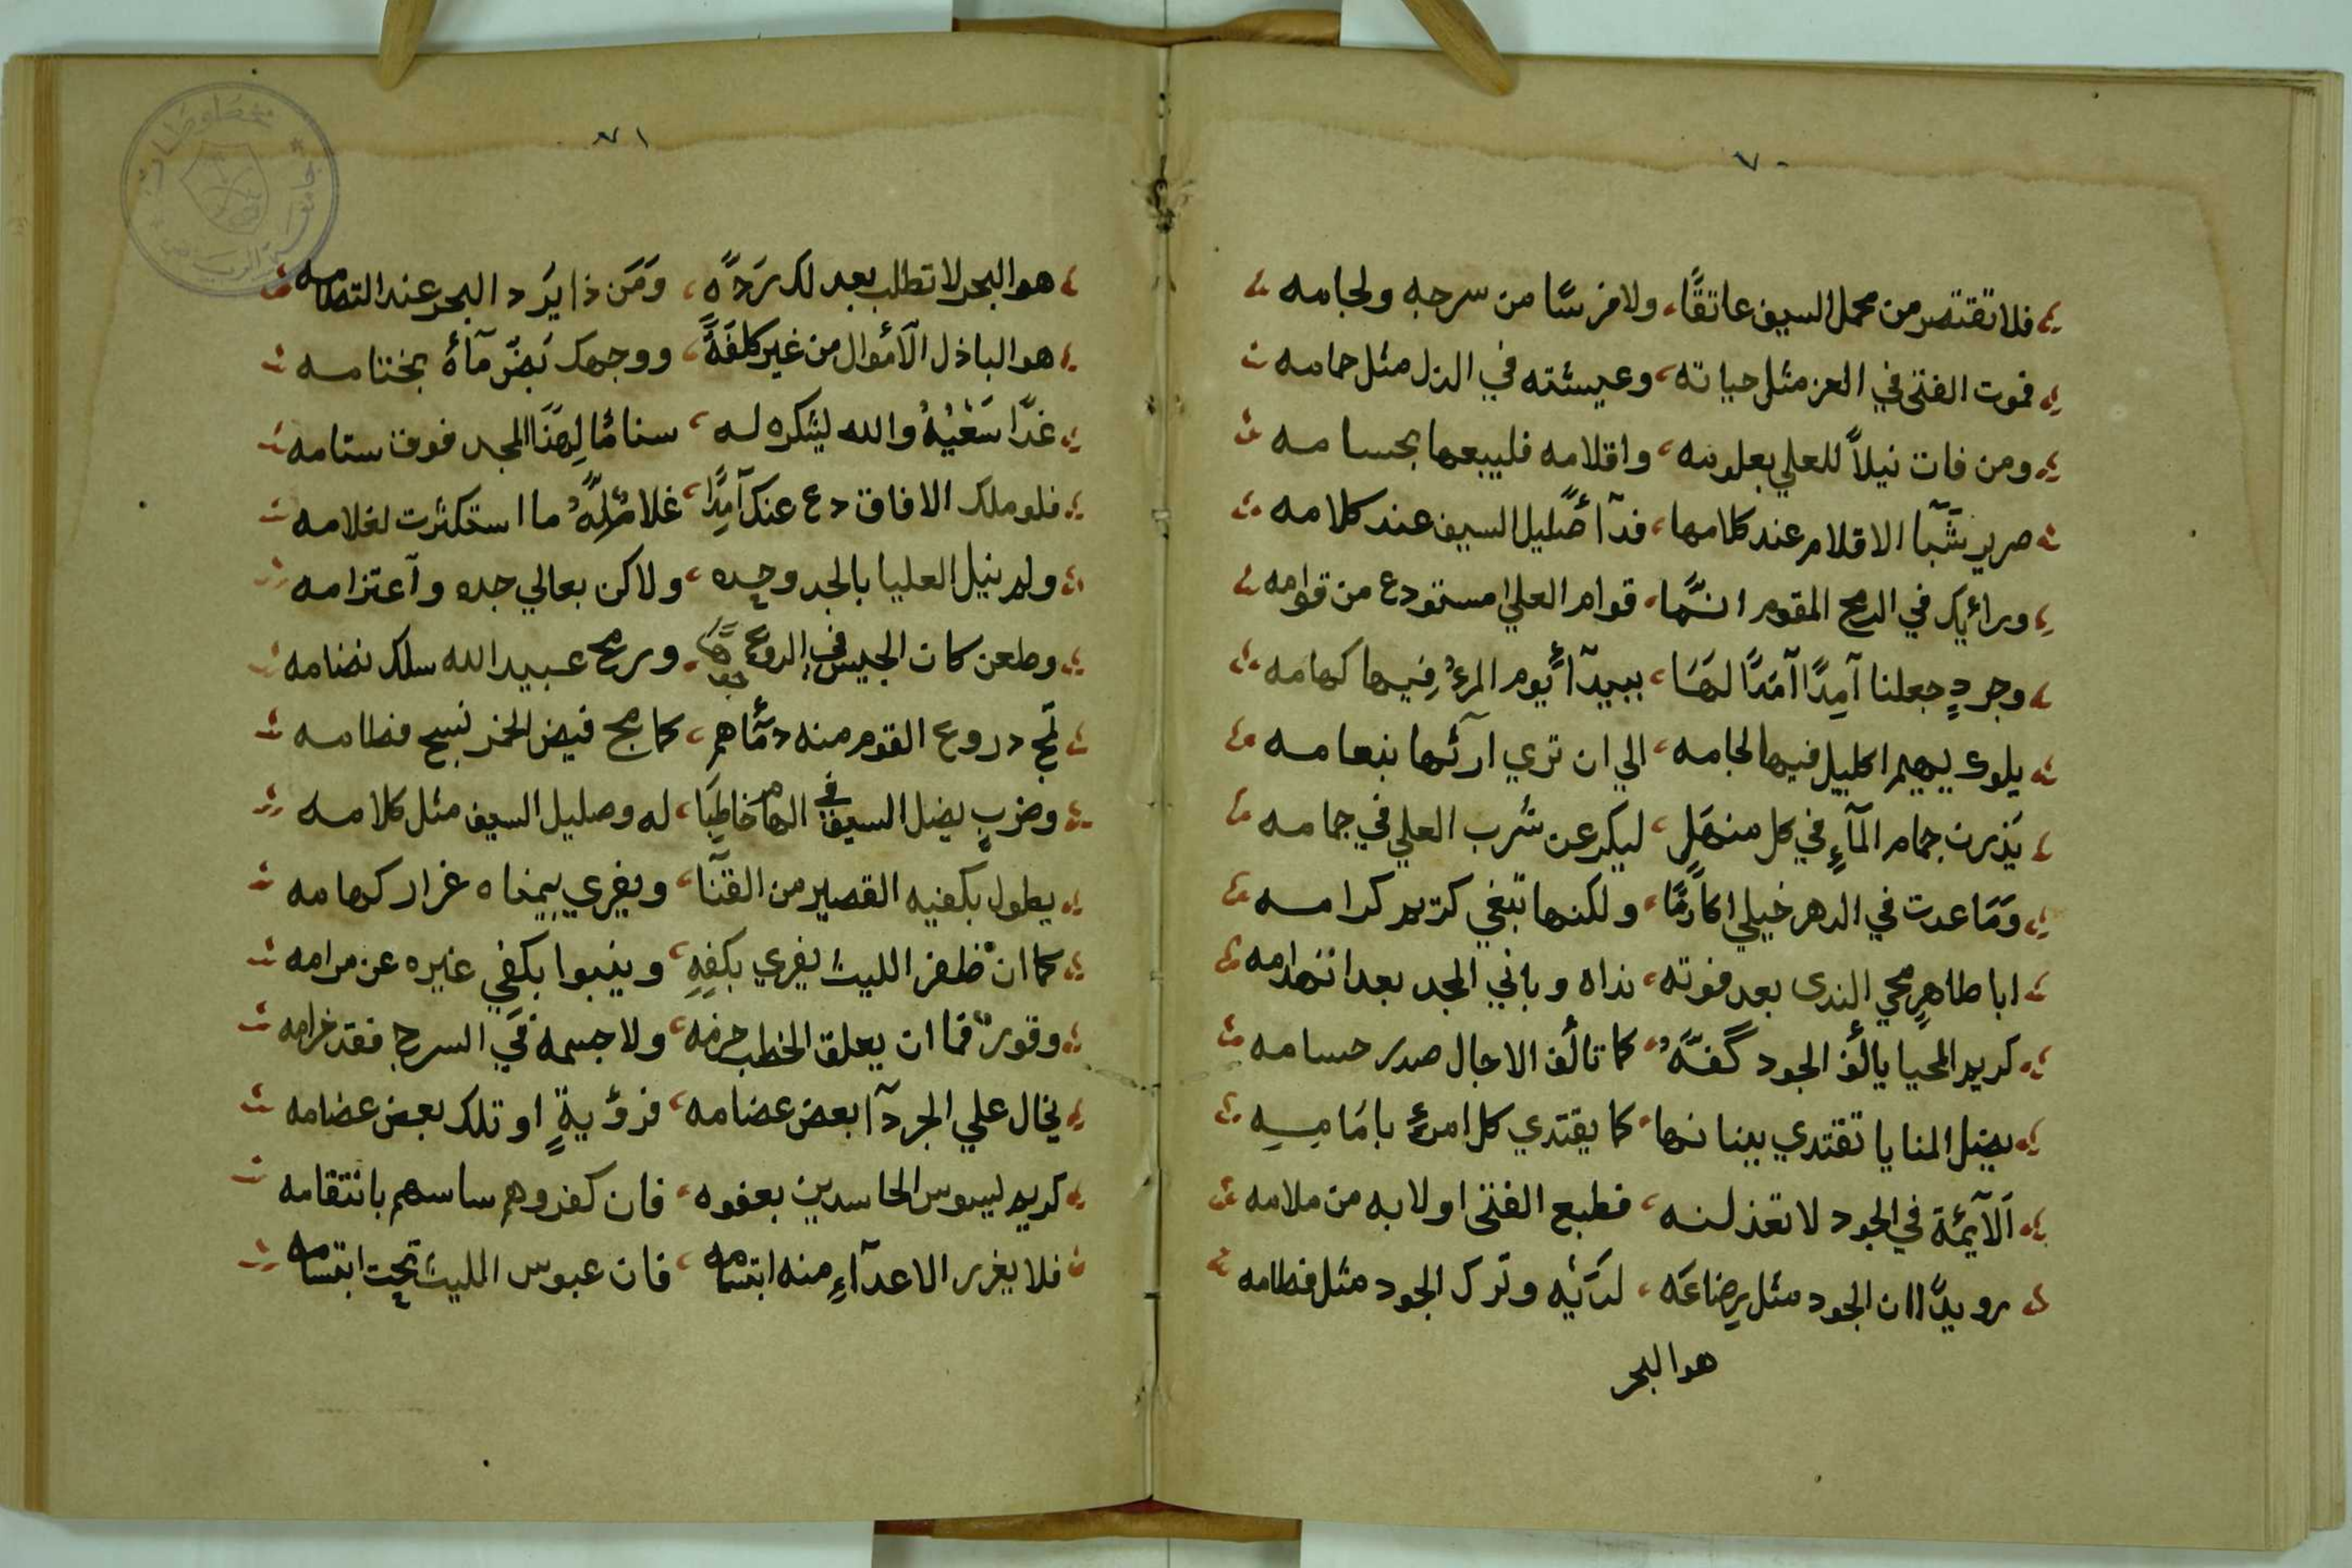 ٧٠
فلا تقتصر من محمل السيف عاتقًا، ولا فرسًا من سرجه ولجامه
فموت الفتى في العز مثل حياته، وعيشته في الذل مثل حمامه
ومن فات نيلاً للعلي بعلومه، واقلامه فليبعها بحسامه
صرير شَبَا الاقلام عند كلامها، فدآ صليل السيف عند كلامه
ورائيك في الرمح المقوم انَّما، قوام العلي مستودع من قوامه
وجردٍ جعلنا آمِدًا آمَدًا لهَا، ببيدآ أيوم المرءُ فِيها كهامه
يلوك بهيم الليل فيها لجامه، الي ان تري ارآئها بنعامه
يَذرن جمام المآءِ في كل منهَلٍ، ليكرعن شرب العلي في جمامه
وَمَا عدت في الدهر خيلي اكارمًا، ولكنها تبغي كريم كرامه
ابا طاهرٍ محي الندى بعد فوته، نداه وباني المجد بعد انهدامه
كريم المحيا يالف الجود كفَّهُ، كما تالف الاجال صدر حسامه
يضل المنايا تقتدي ببنانها، كما يقتدي كل امرئٍ بامَامِهِ
اَلآيمَّة في الجود لا تعذلنه، فطبع الفتى اولا به من ملامه
رويدًا ان الجود مثل رِضاعَه، لدَيْه وترك الجود مثل فطامه
هو البحر
٧١
هو البحر لا تطلب بعدلك رَدَّه، وَمَن ذا يَرد البحر عند التطامه
هو الباذل الآموال من غير كلفَةً، ووجهك بَضّ مآءُ بختامه
غدًا سَعْيُهُ والله ليشكره له، سنامًا لِهَذَا المجد فوق سنامه
فلو ملك الافاق دع عنك آمِدًا، غلامٌ لَهُ ما استكثرت لغلامه
ولم ينيل العليا بالجد وحده، ولاكن بعالي جده وآعتزامه
وطعن كان الجيش في الروع، ورمح عبيد الله سلك نضامه
تمج دروع القوم منه دمآهم، كما مج فيض الخمر نسيج فطامه
وضربٍ يضل السيف في الهام خاطِبًا، له وصليل السيف مثل كلامه
يطول بكفيه القصير من القنَا، ويفري بيمناه غرار كهامه
كما انْ ظفر الليث يفري بكفِهِ، وينبوا بكفي غيره عن مرامه
وقورٌ فما ان يعلق الخطب حزمه، ولا جسمه في السرج فقد خرامه
يخال علي الجردآ بعض عضامه، فرؤيةٍ او تلك بعض عضامه
كريم ليسوس الحاسدين بعفوه، فان كفروهم ساسهم بانتقامه
فلا يغرر الاعدآءِ منه ابتسامه، فان عبوس الليث تحت ابتسامه